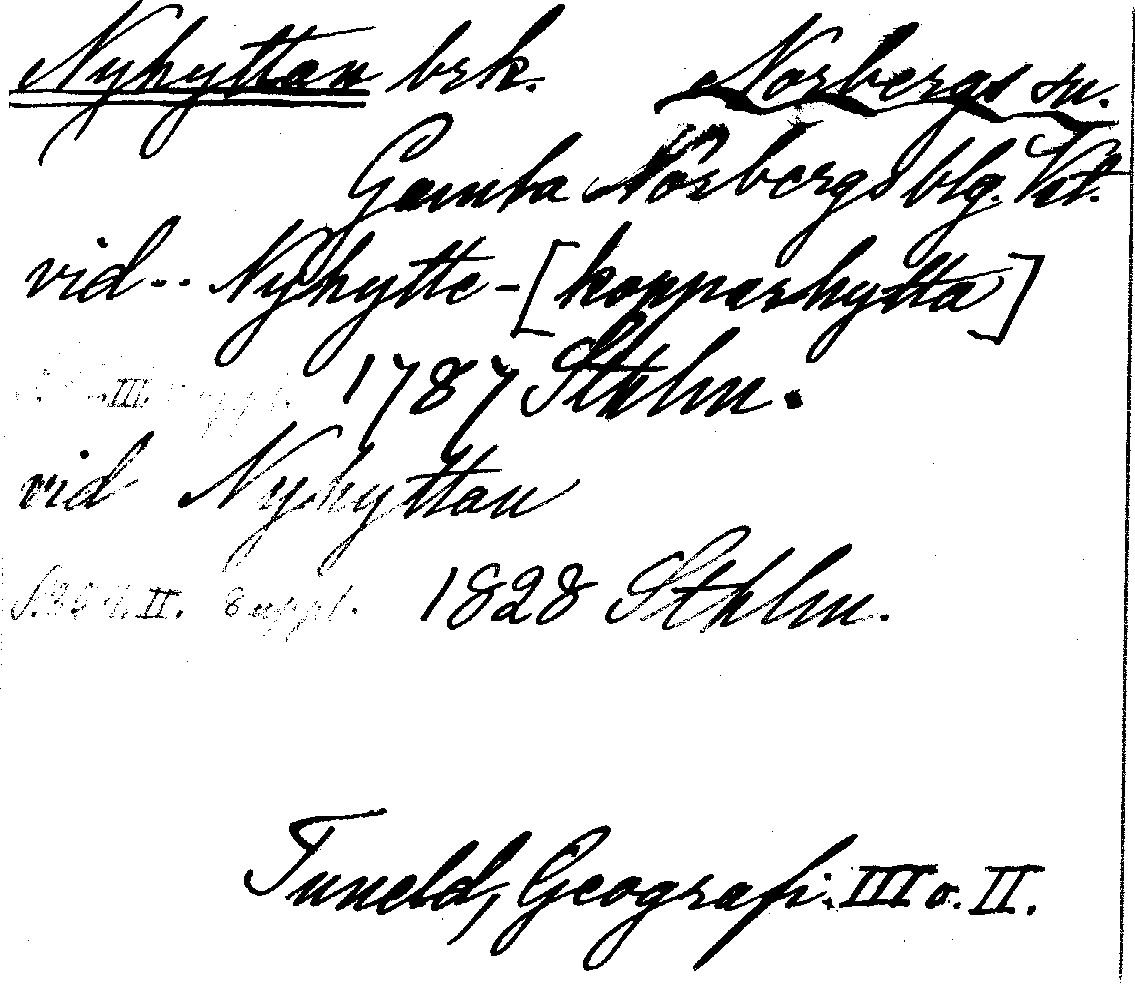 Nyhyttan brk. Norbergs sn.
Gamla Norbergs blg. Vstm.
vid .. Nyhytte - [kopparhytta]
III. suppl. 1787 Sthlm.
vid Nyhyttan
II. Suppl. 1828 Sthlm.
Tuneld, Geografi. III o. II.